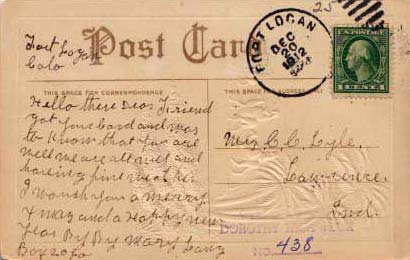 25
Fort Logan
Colo
Post Card
FORT LOGAN
DEC
20
1912
THIS SPACE FOR CORRESPONDENCE
THIS SPACE
1 CENT 1
Hello there Dear Friend
got your card and was
to Know that you are
well we are all well and
having fine weather
I wish you a merry
X mas and a Happy new
Year By By Mary
Box
Mrs C. C. Lyle.
Lawrence.
Ind.
DOROTHY
NO. 438